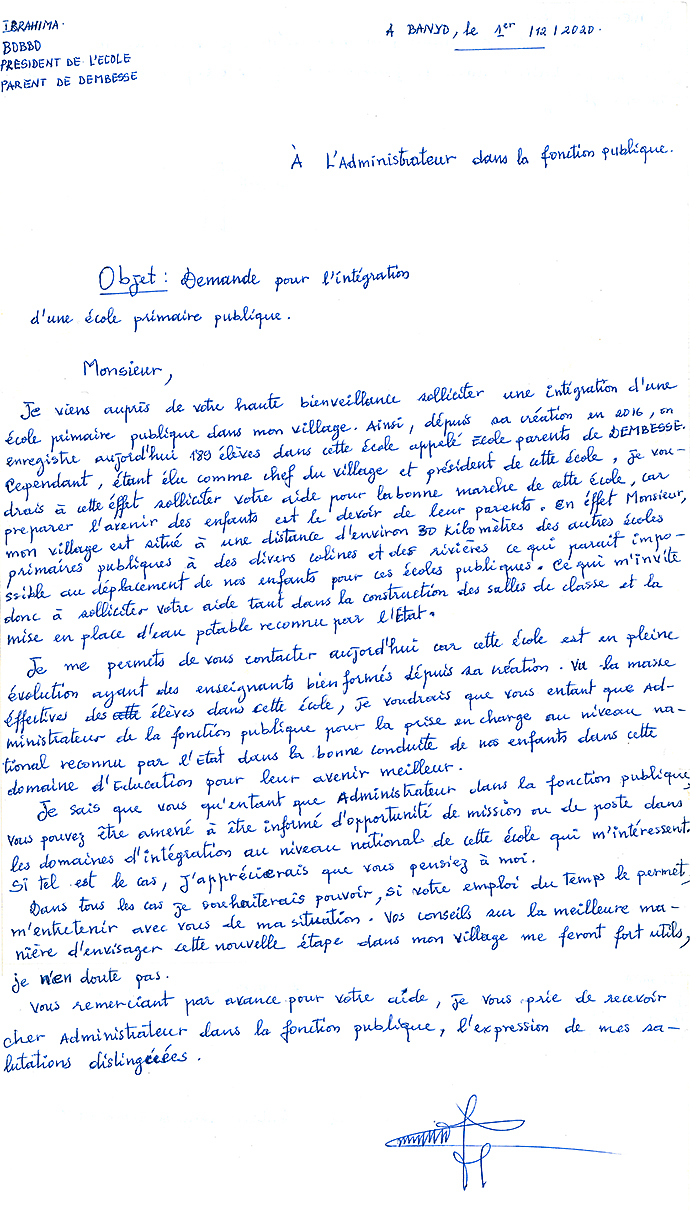 IBRAHIMA
BOBBO
PRESIDENT DE L'ECOLE
PARENT DE DEMBESSE
A BANYO, le 1er /12/2020.
À L'Administrateur dans la fonction publique.
Objet : Demande pour l'intégration
d'une école primaire publique.
Monsieur,
Je viens auprès de votre haute bienveillance solliciter une intégration d'une
école primaire publique dans mon village. Ainsi, dépuis sa création en 2016, on
enregistre aujourd'hui 189 élèves dans cette école appelé Ecole parents de DEMBESSE.
Cependant, étant élu comme chef du village et président de cette école, je vou-
drais à cette éffet solliciter votre aide pour la bonne marche de cette école, car
preparer l'avenir des enfants est le devoir de leur parents. En éffet Monsieur,
mon village est situé à une distance d'environ 30 Kilomètres des autres écoles
primaires publiques à des divers colines et des rivières ce qui parait impo-
ssible au déplacement de nos enfants pour ces écoles publiques. Ce qui m'invite
donc à solliciter votre aide tant dans la construction des salles de classe et la
mise en place d'eau potable reconnu par l'État.
Je me permets de vous contacter aujourd'hui car cette école est en pleine
évolution ayant des enseignants bien formés dépuis sa création. Vu la masse
éffectives des élèves dans cette école, je voudrais que vous entant que Ad-
ministrateur de la fonction publique pour la prise en charge au niveau na-
tional reconnu par l'Etat dans la bonne conduite de nos enfants dans cette
domaine d'Education pour leur avenir meilleur.
Je sais que vous qu'entant que Administrateur dans la fonction publique,
vous pouvez être amené à être informé d'opportunité de mission ou de poste dans
les domaines d'intégration au niveau national de cette école qui m'intéressent.
Si tel est le cas, j'apprécierais que vous pensiez à moi.
Dans tous les cas je souhaiterais pouvoir, si votre emploi du temps le permet,
m'entretenir avec vous de ma situation. Vos conseils sur la meilleure ma-
nière d'envisager cette nouvelle étape dans mon village me feront fort utils,
je n'en doute pas.
Vous remerciant par avance pour votre aide, je vous prie de recevoir
cher Administrateur dans la fonction publique, l'expression de mes sa-
lutations distinguées.